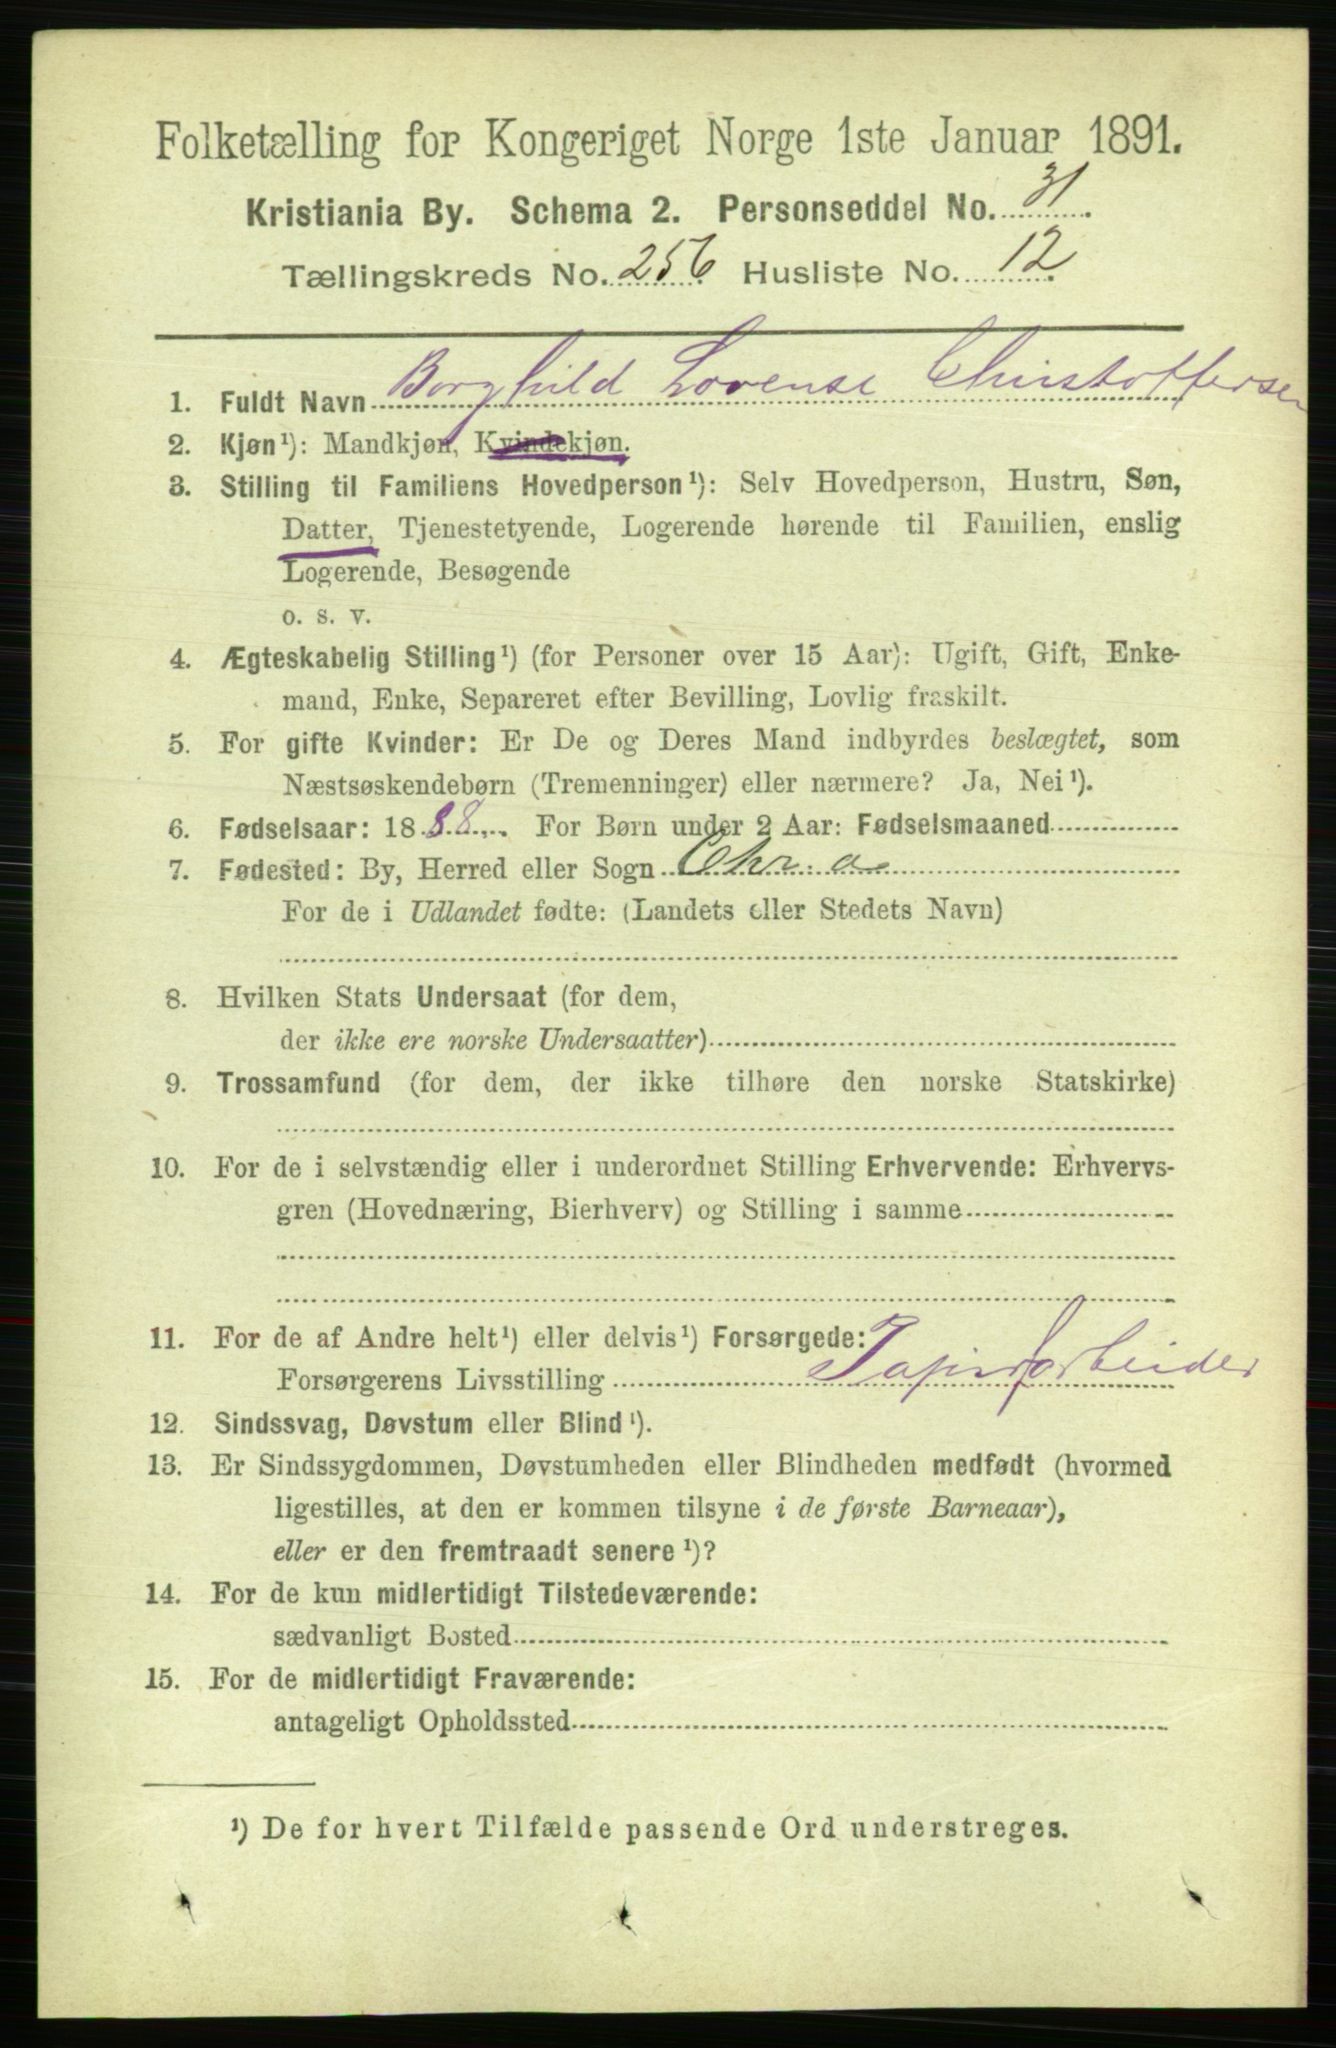 Folketælling for Kongeriget Norge 1ste Januar 1891.
Kristiania By. Schema 2. Personseddel No. 31
Tællingskreds No. 256 Husliste No. 12
1. Fuldt Navn Borghild Lovense Christoffersen
2. Kjøn¹): Mandkjøn, Kvindekjøn.
3. Stilling til Familiens Hovedperson¹): Selv Hovedperson, Hustru, Søn,
Datter, Tjenestetyende, Logerende hørende til Familien, enslig
Logerende, Besøgende
o. s. v.
4. Ægteskabelig Stilling¹) (for Personer over 15 Aar): Ugift, Gift, Enke-
mand, Enke, Separeret efter Bevilling, Lovlig fraskilt.
5. For gifte Kvinder: Er De og Deres Mand indbyrdes beslægtet, som
Næstsøskendebørn (Tremenninger) eller nærmere? Ja, Nei¹).
6. Fødselsaar: 1888. For Børn under 2 Aar: Fødselsmaaned
7. Fødested: By, Herred eller Sogn Chr. a
For de i Udlandet fødte: (Landets eller Stedets Navn)
8. Hvilken Stats Undersaat (for dem,
der ikke ere norske Undersaatter)
9. Trossamfund (for dem, der ikke tilhøre den norske Statskirke)
10. For de i selvstændig eller i underordnet Stilling Erhvervende: Erhvervs-
gren (Hovednæring, Bierhverv) og Stilling i samme
11. For de af Andre helt¹) eller delvis¹) Forsørgede:
Forsørgerens Livsstilling
12. Sindssvag, Døvstum eller Blind¹).
13. Er Sindssygdommen, Døvstumheden eller Blindheden medfødt (hvormed
ligestilles, at den er kommen tilsyne i de første Barneaar),
eller er den fremtraadt senere¹)?
14. For de kun midlertidigt Tilstedeværende:
sædvanligt Bosted
15. For de midlertidigt Fraværende:
antageligt Opholdssted
¹) De for hvert Tilfælde passende Ord understreges.